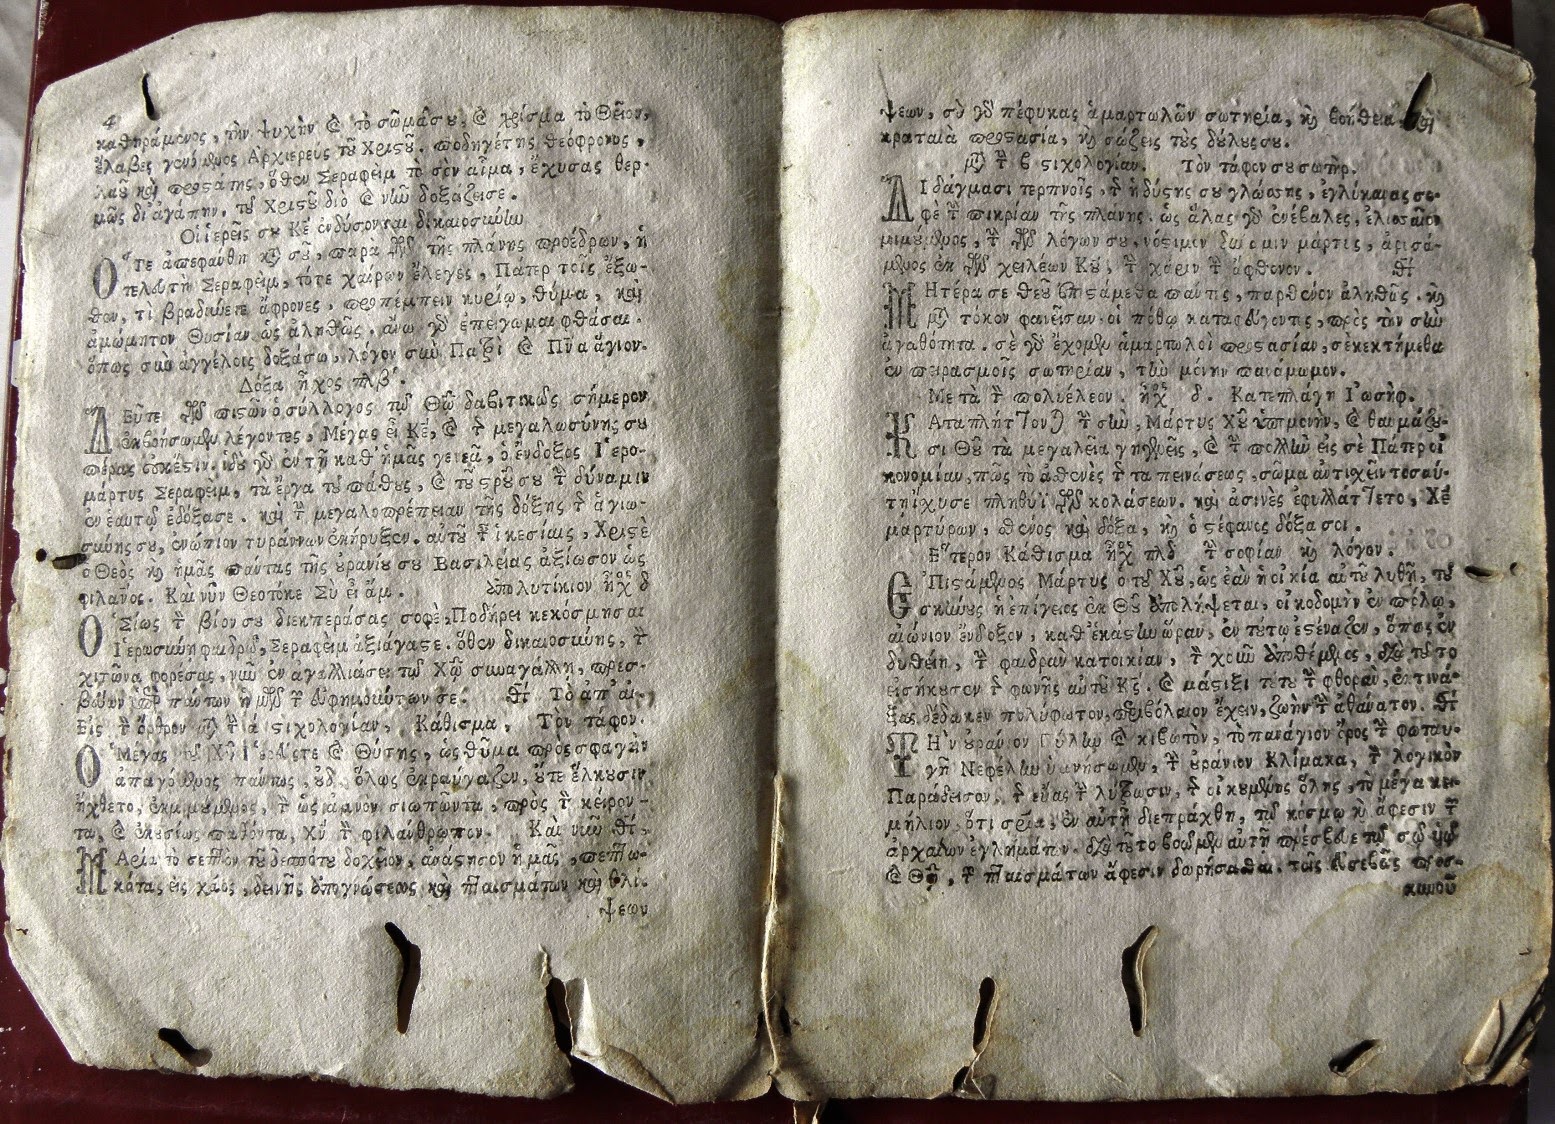 4
καθηράμενος, τὴν ψυχὴν ϗ τὸ σῶμάσου, ϗ χρίσμα τὸ Θεῖον,
ἔλαβες γενόμενος Ἀρχιερεὺς τοῦ Χριστοῦ. ποδηγέτης θεόφρονος,
λαοῦ καὶ προστάτης, ὅθεν Σεραφεὶμ τὸ σὸν αἷμα, ἔχυσας θερ-
μῶς δι' ἀγάπην, τοῦ Χριστοῦ διὸ ϗ νῦν δοξάζεισε.
Οἱ ἱερεῖς σου Κέ ἐνδύσονται δικαιοσύνην
Ὅτε ἀπεφάνθη σοῦ, παρὰ τῶν τῆς πλάνης προέδρων, ἡ
τελευτὴ Σεραφεὶμ, τότε χαίρων ἔλεγες, Πάτερ τοῖς ἔξω-
θεν, τί βραδύνετε ἄφρονες, προπέμπειν κυρίῳ, θύμα, καὶ
ἀμώμητον Θυσίαν ὡς ἀληθῶς. ἄνω γὸ ἐπείγομαι φθάσαι.
ὅπως σὺν ἀγγέλοις δοξάσω, λόγον σὺν Πατρὶ ϗ Πνα ἅγιον.
Δόξα ἦχος πλβ'.
Δεῦτε τῶν πιστῶν ὁ σύλλογος τῷ Θῷ δαβιτικῶς σήμερον
ἐκβοήσωμεν λέγοντες, Μέγας εἶ Κέ, ϗ τ μεγαλωσύνης σου
πέρας οὐκέστιν. ἰδοὺ γὸ ἐν τῇ καθ' ἡμᾶς γενεᾷ, ὁ ἔνδοξος Ἱερο-
μάρτυς Σεραφεὶμ, τὰ ἔργα τοῦ πάθους, ϗ τοῦ σροῦ σου τὴν δύναμιν
ἐν ἑαυτῷ ἐδόξασε. καὶ τὴν μεγαλοπρέπειαν τῆς δόξης τ ἁγιω-
σύνης σου, ἐνώπιον τυράννων ἐκήρυξεν. αὐτοῦ τ ἱκεσίαις, Χριστὲ
ὁ Θεὸς ϗ ἡμᾶς πάντας τῆς οὐρανίου σου Βασιλείας ἀξίωσον ὡς
φιλανος. Καὶ νῦν Θεοτόκε Σὺ εἶ ἄμ. Ἀπολυτίκιον ἦχ δ
Ὁσίως τὴν βίον σου διεκπεράσας σοφὲ, Ποδήρει κεκόσμησαι
Ἱερωσύνη φαιδρῷ, Σεραφεὶμ ἀξιάγαστε. ὅθεν δικαιοσύνης, τὴν
χιτῶνα φορέσας, νῦν ἐν ἀγαλλιάσει τῷ Χῷ συναγάλλῃ, πρεσ-
βεύων ὑπὲρ πάντων ἡμῶν τ εὐφημούντων σε. Θτ Τὸ ἀπ' αἰ-
Εἰς τ ὄρθρον μτ τ ά στιχολογίαν, Κάθισμα, Τὸν τάφον.
Ὁ Μέγας τοῦ Χῦ ϗ Θύτης, ὡς θῦμα προεσφαγὴν
ἀπαγόμενος πάντως, οὐδ' ὅλως ἐκραύγαζεν, οὔτε ἕλκυσιν
ἤχθετο, ἐκμιμούμενος, τ ὡς ἀμνὸν σιωπῶντα, πρὸς τ κείρον-
τα, ϗ ἑκουσίως παθόντα, Χν τ φιλάνθρωπον. Καὶ νῦν Θτ.
Μαρία τὸ σεπτὸν τοῦ δεσπότου δοχεῖον, ἀνάστησον ἡμᾶς, πεπτω-
κότας εἰς χάος, δεινῆς ἀπογνώσεως καὶ πταισμάτων καὶ θλί-
ψεων
ψεων, σὺ γὸ πέφυκας ἁμαρτωλῶν σωτηρία, ϗ βοήθεια καὶ
κραταιὰ προστασία, ϗ σώζεις τοὺς δούλουςσου.
μτ τ β στιχολογίαν. Τὸν τάφον σου σωτὴρ.
Διδάγμασι τερπνοῖς, τ ἡδύστης σου γλώσσης, ἐγλύκανας σο-
φὲ τ πικρίαν τῆς πλάνης. ὡς ἅλας γὸ ἐνέβαλες,
μιμούμενος, τ τῶν λόγων σου, νόστιμεν μάρτυς,
ἐκ τῶν χειλέων Κῦ, τ χάριν τ ἄφθονον. Θτ
Μητέρα σε θεοῦ ἐπιστάμεθα πάντες, παρθένον ἀληθῶς, ϗ
μτ τόκον φανεῖσαν. οἱ πόθῳ καταφεύγοντες, πρὸς τὴν σὴν
ἀγαθότητα. σὲ γὸ ἔχομεν ἁμαρτωλοὶ προστασίαν, σὲ κεκτήμεθα
ἐν πειρασμοῖς σωτηρίαν, τὴν μόνην πανάμωμον.
Μετὰ τ πολυέλεον. ἦχ δ. Κατεπλάγη Ἰωσὴφ.
Καταπλήττονται τ σὴν, Μάρτυς Χῦ ὑπομονὴν, ϗ θαυμάζου-
σι Θῦ τὰ μεγαλεῖα γηγενεῖς, ϗ τ πολλὴν εἰς σὲ Πάτερ οἰ-
κονομίαν, πῶς τὸ ἀσθενὲς τ ταπεινώσεως, σῶμα ἀντισχεῖν τοσαύ-
τῃ ἴσχυσε πληθύϊ τῶν κολάσεων. καὶ ἀσινὲς ἐφυλλάττετο, Χέ
μαρτύρων, σθένος καὶ δόξα, ϗ ὁ στέφανος δόξα σοι.
Ἕτερον Κάθισμα ἦχ πλδ τ σοφίαν ϗ λόγον.
Ἐπιστάμενος Μάρτυς ὁ τοῦ Χῦ, ὡς ἐὰν ἡ οἰκία αὐτοῦ λυθῇ, τοῦ
σκήνους ἡ ἐπίγειος ἐκ Θῦ ἀπολήψεται, οἰκοδομὴν ἐν πόλῳ,
αἰώνιον ἔνδοξον, καθ' ἑκάστην ὥραν, ἐν τούτῳ ἐστέναζεν, ὅπως ἐν
δυθείη, τ φαιδρὰν κατοικίαν, τ χοῦν ἀποθέμενος, διὰ τοῦτο
εἰσήκουσεν τ φωνῆς αὐτοῦ Κς. ϗ μάστιξι τούτου τ φθορὰν, ἐκτινά-
ξας δέδωκεν πολύφωτον, περιβόλαιον ἔχειν, ζωὴν τ ἀθάνατον. Θτ
Τὴν οὐράνιον πύλην ϗ κιβωτὸν, τὸ πανάγιον ὄρος τ φωταυ-
γῆ Νεφέλην ὑμνήσωμεν, τ οὐράνιον Κλίμακα, τ λογικὸν
Παράδεισον, τ εὔας τ λύτρωσιν, τ οἰκουμένης ὅλης, τὸ μέγα κει-
μήλιον, ὅτι σρία, ἐν αὐτῇ διεπράχθη, τῷ κόσμῳ ϗ ἄφεσιν τ
ἀρχαίων ἐγκλημάτων. διὰ τοῦτο βοῶμεν αὐτῇ πρέσβευε τῷ σῷ
ϗ Θῷ, τ πταισμάτων ἄφεσιν δωρήσασθαι, τοῖς εὐσεβῶς προσ-
κυνοῦ